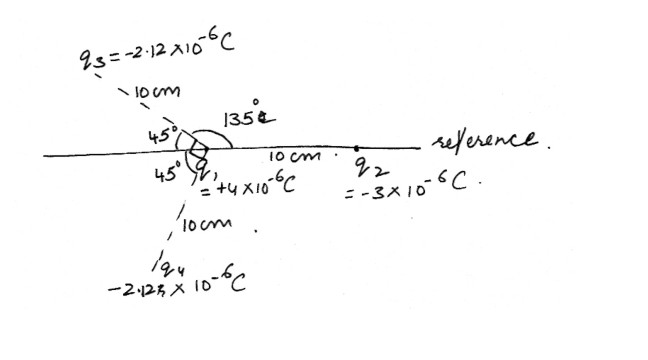 q₃ = -2.12 × 10⁻⁶ C
10 cm
135°
45°
reference.
10 cm.
45°
q₁
= +4 × 10⁻⁶ C
q₂
= -3 × 10⁻⁶ C.
10 cm.
q₄
× 10⁻⁶ C